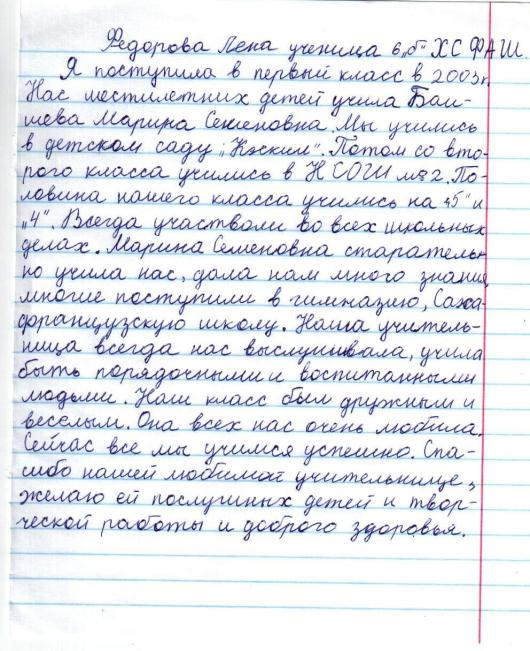 Федорова Лена ученица 6 „б" ХС ФАШ.
Я поступила в первый класс в 2003 г.
Нас шестилетних детей учила Баи-
шева Марина Семеновна. Мы учились
в детском саду „Кэскил". Потом со вто-
рого класса учились в НСОШ №2. По-
ловина нашего класса учились на „5" и
„4". Всегда участвоали во всех школьных
делах. Марина Семеновна старатель-
но учила нас, дала нам много знаний,
многие поступили в гимназию, Саха-
французскую школу. Наша учитель-
ница всегда нас выслушивала, учила
быть порядочными и воспитанными
людьми. Наш класс был дружным и
веселым. Она всех нас очень любила.
Сейчас все мы учимся успешно. Спа-
сибо нашей любимой учительнице,
желаю ей послушных детей и твор-
ческой работы и доброго здоровья.